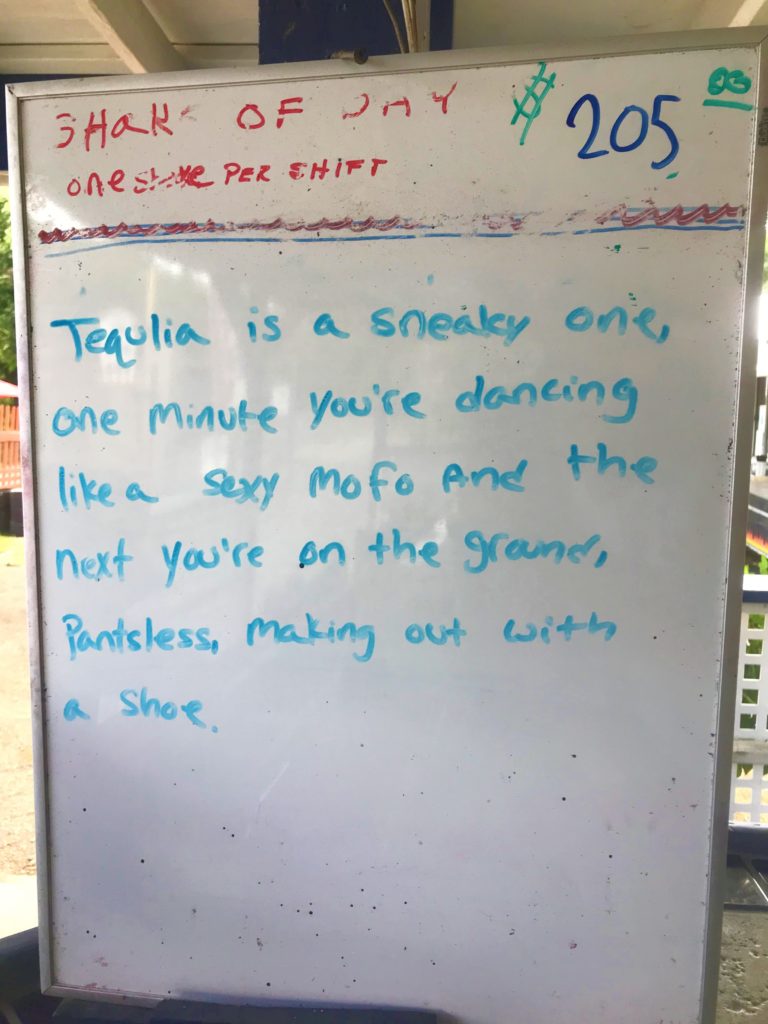 SHAKE OF DAY $ 205 00
one shake PER SHIFT
Tequlia is a sneaky one,
one minute you're dancing
like a sexy mofo And the
next you're on the ground,
Pantsless, making out with
a shoe.